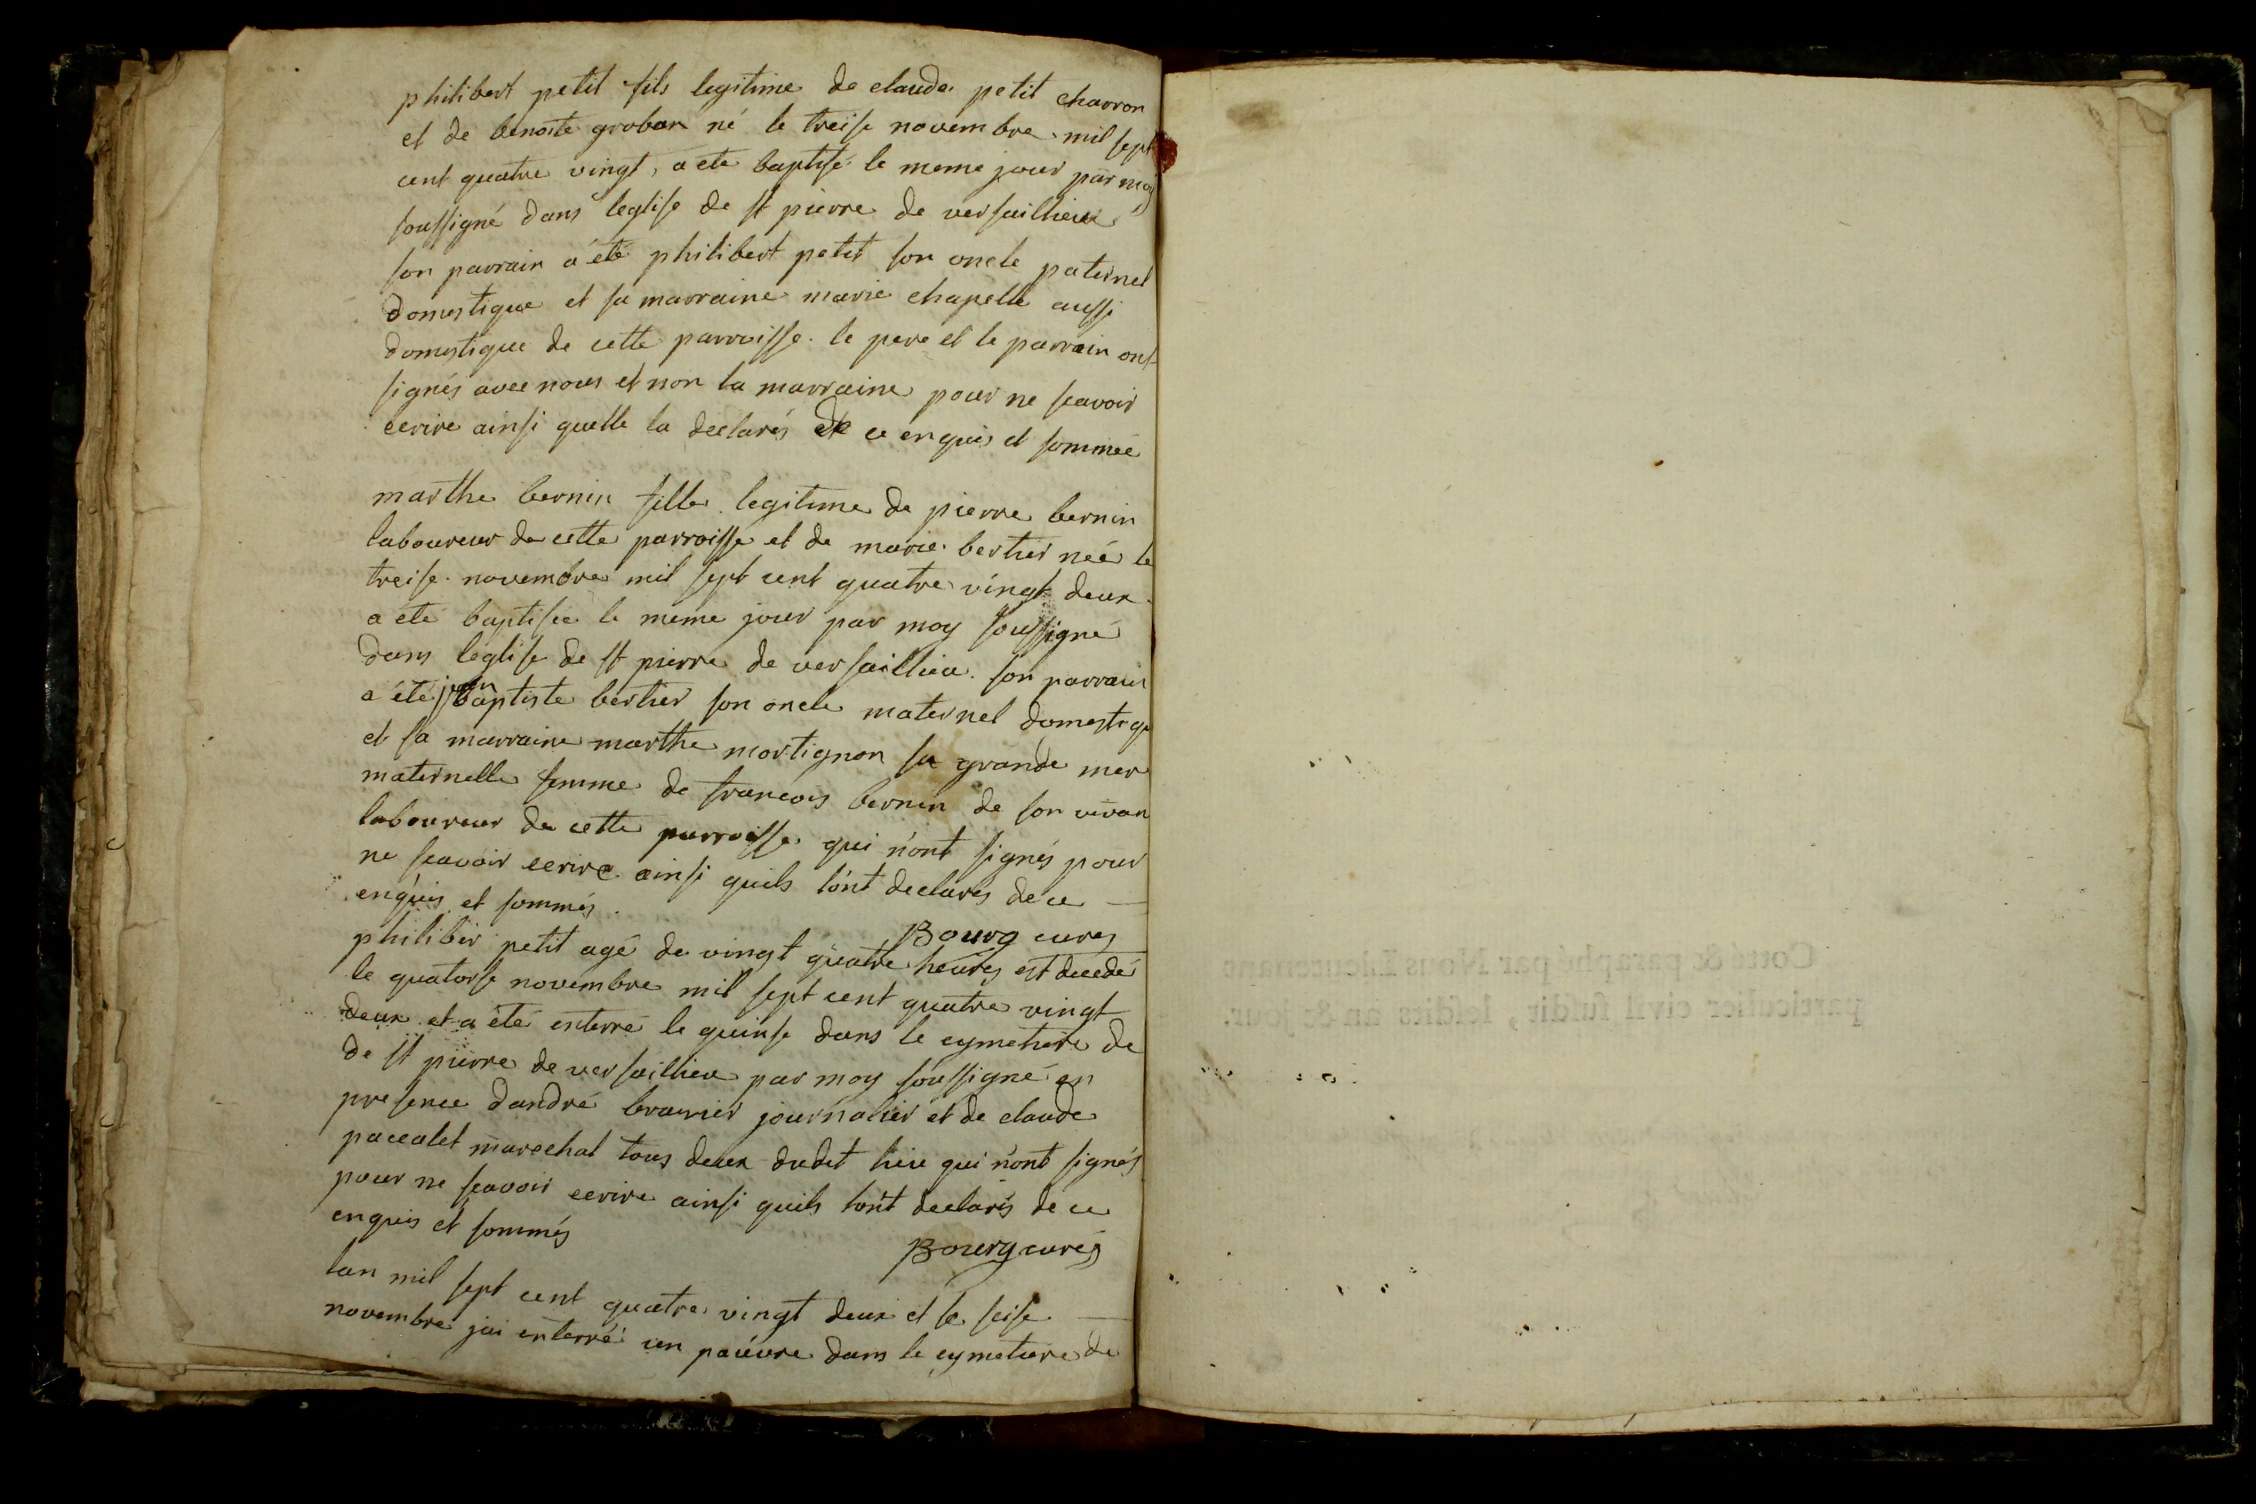 philibert petit fils legitime de claude petit charron
et de benoite groban né le treise novembre mil sept
cent quatre vingt, a ete baptisé le meme jour par moy
soussigné dans leglise de st pierre de versaillieu
son parrain a été philibert petit son oncle paternel
domestique et sa marraine marie chapelle aussi
domestique de cette parroisse. le pere et le parrain ont
signés avec nous et non la marraine pour ne scavoir
ecrire ainsi quelle la declarés de ce enquis et sommée
marthe bernin fille legitime de pierre bernin
laboureur de cette parroisse et de marie bertier neé le
treise novembre mil sept cent quatre vingt deux
a eté baptisée le meme jour par moy soussigné
dans leglise de st pierre de versaillieu. son parrain
a été jean baptiste bertier son oncle maternel domestiqe
et sa marraine marthe mortignon sa grande mere
maternelle femme de francois bernin de son vivan
laboureur de cette parroisse qui n'ont signés pour
ne scavoir ecrire ainsi quils lont declarés de ce
enquis et sommés.
Bourg curés
philiber petit agé de vingt quatre heures est decedé
le quatorse novembre mil sept cent quatre vingt
deux et a été enterré le quinse dans le cymetiere de
de st pierre de versaillieu par moy soussigné en
presence dandré journalier et de claude
paccalet marechal tous deux dudit lieu qui n'ont signés
pour ne scavoir ecrire ainsi quils lont declarés de ce
enquis et sommés
Bourg curés
lan mil sept cent quatre vingt deux et le seise
novembre jai enterré un pauvre dans le cymetiere de
Cotté & paraphé par Nous Lieutenant
particulier civil susdit, lesdits an & jour.